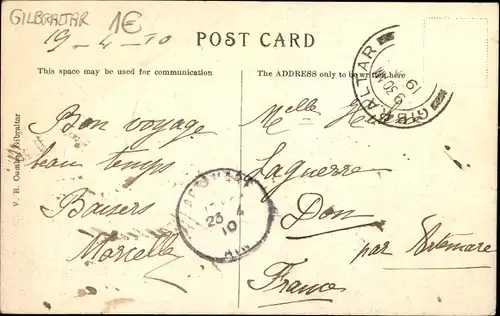 GILBRALTAR 1€
19-4-10
POST CARD
This space may be used for communication
The ADDRESS only to be written here
Bon voyage
beau temps
Baisers
Marcelle
Melle
Laguerre
Don
par Artemare
France
GIBRALTAR
9 30 AM
19
ARTEMARE
23 4
10
AIN
V. B. Cumbo, Gibraltar